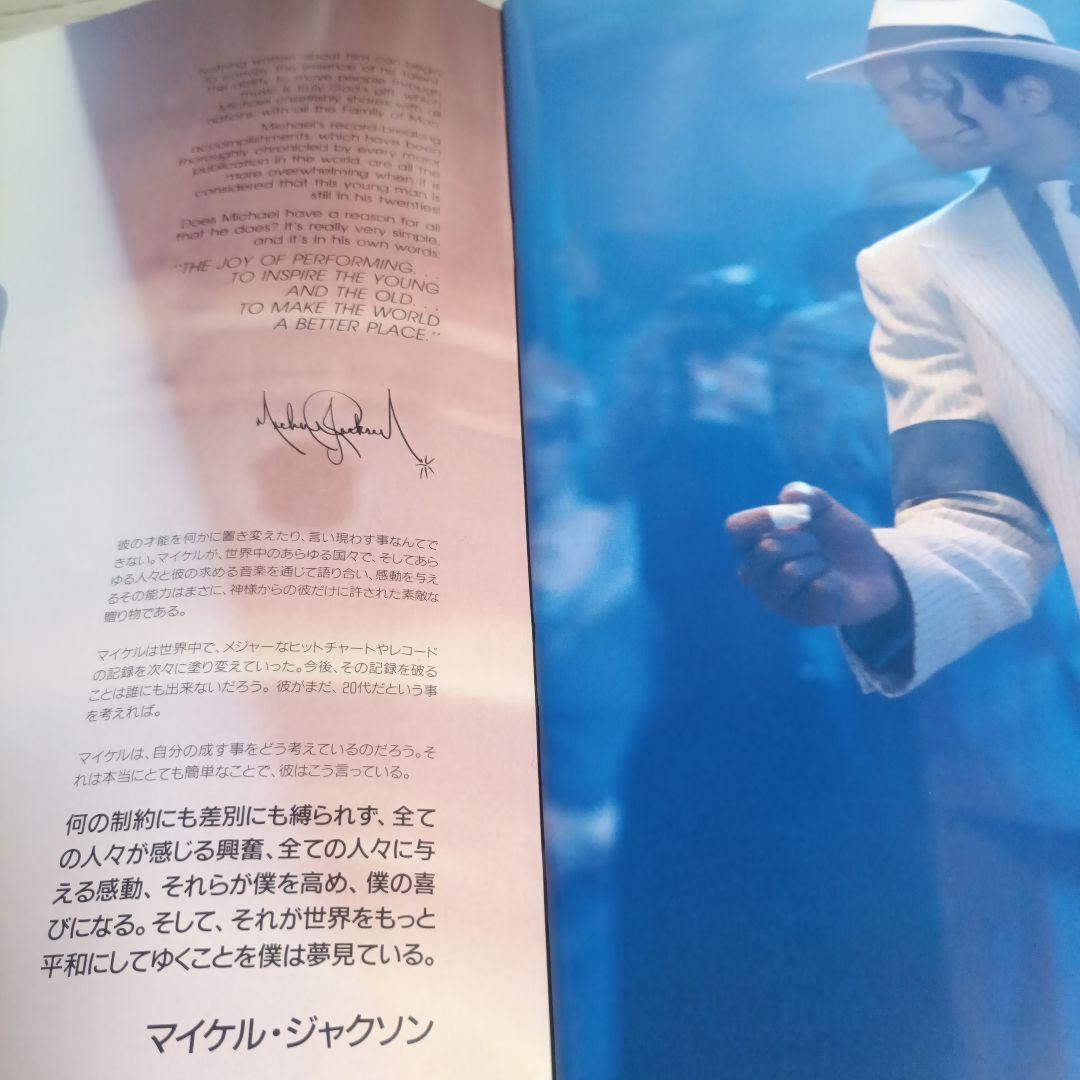 Nothing written about him can begin
to convey the essence of his talent.
The ability to move people through
music is truly God's gift, which
Michael unselfishly shares with all
nations, with all the Family of Man.
Michael's record-breaking
accomplishments, which have been
thoroughly chronicled by every major
publication in the world, are all the
more overwhelming when it is
considered that this young man is
still in his twenties!
Does Michael have a reason for all
that he does? It's really very simple,
and it's in his own words:
"THE JOY OF PERFORMING. . .
TO INSPIRE THE YOUNG
AND THE OLD. . .
TO MAKE THE WORLD
A BETTER PLACE."
Michael Jackson
彼の才能を何かに置き変えたり、言い現わす事なんてで
きない。マイケルが、世界中のあらゆる国々で、そしてあら
ゆる人々と彼の求める音楽を通じて語り合い、感動を与え
るその能力はまさに、神様からの彼だけに許された素敵な
贈り物である。
マイケルは世界中で、メジャーなヒットチャートやレコード
の記録を次々に塗り変えていった。今後、その記録を破る
ことは誰にも出来ないだろう。彼がまだ、20代だという事
を考えれば。
マイケルは、自分の成す事をどう考えているのだろう。そ
れは本当にとても簡単なことで、彼はこう言っている。
何の制約にも差別にも縛られず、全て
の人々が感じる興奮、全ての人々に与
える感動、それらが僕を高め、僕の喜
びになる。そして、それが世界をもっと
平和にしてゆくことを僕は夢見ている。
マイケル・ジャクソン